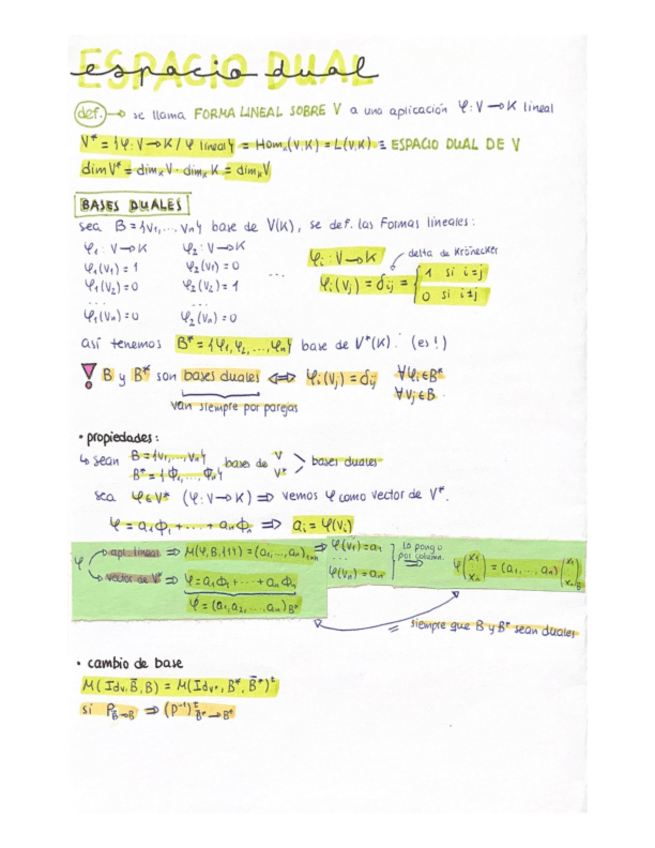 ESPACIO DUAL
espacio dual
def. → se llama FORMA LINEAL SOBRE V a una aplicación φ: V → K lineal
V* = {φ: V → K / φ lineal} = Homₖ(V,K) = L(V,K) ≡ ESPACIO DUAL DE V
dim V* = dimₖV · dimₖK = dimₖV
BASES DUALES
sea B = {v₁, ..., vₙ} base de V(K), se def. las formas lineales:
φ₁: V → K φ₂: V → K φᵢ: V → K delta de Krönecker
φ₁(v₁) = 1 φ₂(v₁) = 0 ... φᵢ(vⱼ) = δᵢⱼ = { 1 si i=j
φ₁(v₂) = 0 φ₂(v₂) = 1 0 si i≠j
... ...
φ₁(vₙ) = 0 φ₂(vₙ) = 0
así tenemos B* = {φ₁, φ₂, ..., φₙ} base de V*(K). (es!)
! B y B* son bases duales ⟺ φᵢ(vⱼ) = δᵢⱼ ∀φᵢ∈B*
∀vⱼ∈B
van siempre por parejas
• propiedades:
↳ sean B = {v₁, ..., vₙ} bases de V bases duales
B* = {Φ₁, ..., Φₙ} V*
sea φ∈V* (φ: V → K) ⟹ vemos φ como vector de V*.
φ = a₁Φ₁ + ... + aₙΦₙ ⟹ aᵢ = φ(vᵢ)
φ apl. lineal ⟹ M(φ, B, {1}) = (a₁, ..., aₙ)₁ₓₙ ⟹ φ(v₁) = a₁ ... φ(vₙ) = aₙ lo pongo por column. ⟹ φ(x₁ ... xₙ) = (a₁, ..., aₙ)(x₁ ... xₙ)B
vector de V* ⟹ φ = a₁Φ₁ + ... + aₙΦₙ
φ = (a₁, a₂, ..., aₙ)B*
= siempre que B y B* sean duales
• cambio de base
M(Idv, B̄, B) = M(Idv*, B*, B̄*)ᵗ
si P B̄→B ⟹ (P⁻¹)ᵗ B̄*→B*